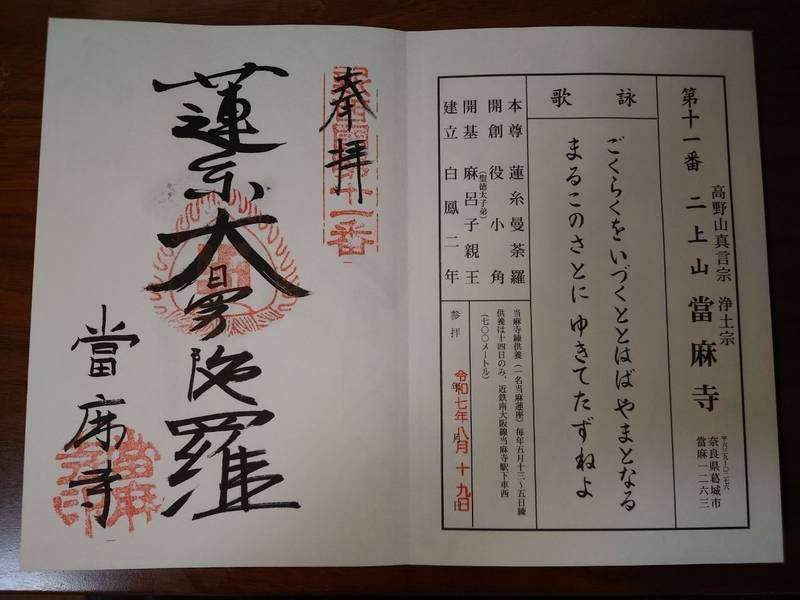 高野山真言宗 浄土宗
第十一番 二上山 當麻寺
〒六三九-〇二七六
奈良県葛城市
當麻一二六三
詠歌
ごくらくを いづくととはば やまとなる
まるこのさとに ゆきてたずねよ
本尊 蓮糸曼荼羅
開創 役小角
開基 麻呂子親王
(聖徳太子弟)
建立 白鳳二年
当麻寺練供養(一名当麻蓮座)毎年五月十三〜五日練
供養は十四日のみ、近鉄南大阪線当麻寺駅下車西
(七〇〇メートル)
参拝 年 月 日
令和七年 八月 十九日
奉拝
第十一番
蓮糸大曼陀羅
當麻寺